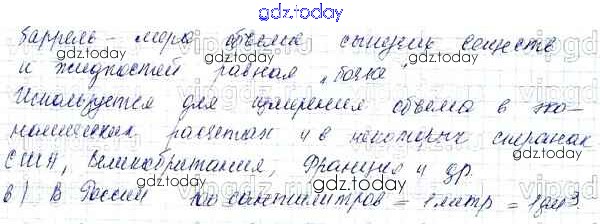 gdz.today
баррель - мера объема сыпучих веществ
и жидкостей равная "бочка"
gdz.today
Используется для измерения объема в эко-
номических расчетах и в некоторых странах
США, Великобритания, Франция и др.
в) В России 100 сантилитров = 1 литр = 1 дм³.
gdz.today